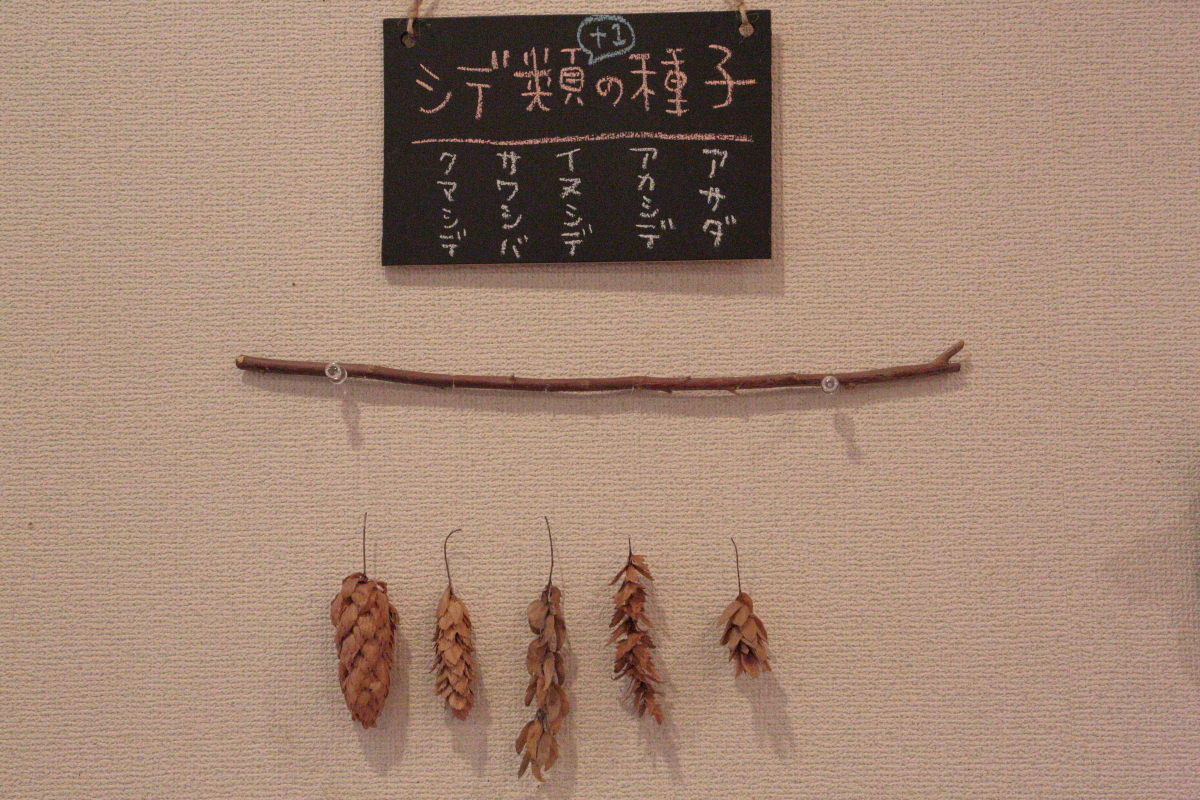 +1
シデ類の種子
アサダ
アカシデ
イヌシデ
サワシバ
クマシデ